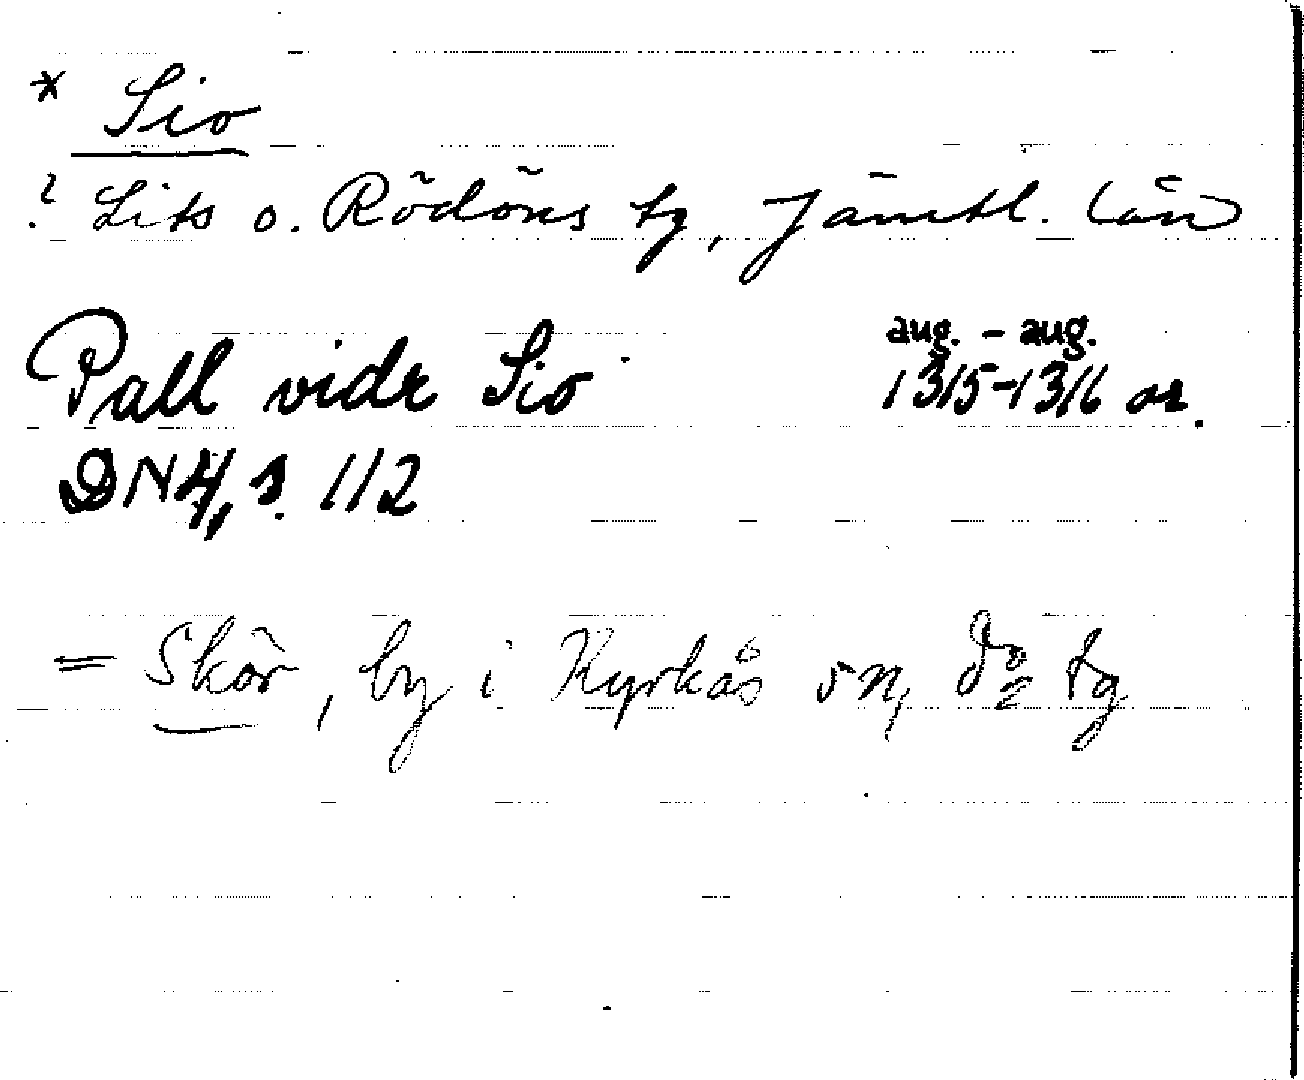 * Sio
? Lits o. Rödöns tg, Jämtl. län
Pall vidr Sio aug. - aug. 1315-1316 or.
DN 4, s. 112
= Skör, by i Kyrkås sn, do tg